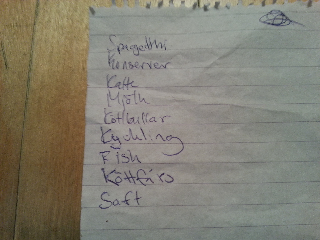 Spagetthi
Konserver
Kaffe
Mjölk
Köttbullar
Kyckling
Fish
Köttfärs
Saft